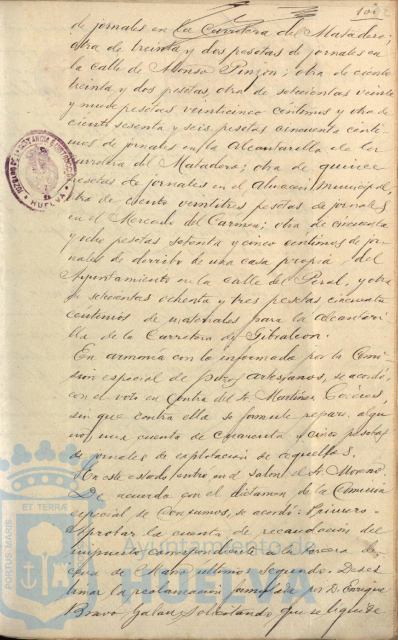 de jornales en la Carretera del Matadero;
otra de treinta y dos pesetas de jornales en
la calle de Alonso Pinzón; otra de ciento
treinta y dos pesetas, otra de setecientas veinte
y nueve pesetas veinticinco céntimos y otra de
ciento sesenta y seis pesetas cincuenta cénti-
mos de jornales en la Alcantarilla de la
carretera del Matadero; otra de quince
pesetas de jornales en el Almacén Municipal,
otra de ciento veintitres pesetas de jornales
en el Mercado del Carmen; otra de cincuenta
y ocho pesetas setenta y cinco céntimos de jor-
nales de derribo de una casa propia del
Ayuntamiento en la calle del Peral, y otra
de setecientas ochenta y tres pesetas cincuenta
céntimos de materiales para la alcantari-
lla de la Carretera de Gibraleon.
En armonía con lo informado por la Comi-
sión especial de pozos artesianos, se acordó,
con el voto en contra del Sr. Martínez
sin que contra ella se formule reparo algu-
no, una cuenta de cuarenta y cinco pesetas
de jornales de explotación de aquellos.
En este estado entró en el salón el Sr. Moreno.
De acuerdo con el dictamen de la Comisión
especial de Consumos, se acordó: Primero.
Aprobar la cuenta de recaudación del
impuesto, correspondiente a la tercera de-
cena de Mayo último. Segundo. Deses-
timar la reclamación formulada por D. Enrique
Bravo Galan, solicitando que se liquide
JUZGADO DE 1ª INSTANCIA E INSTRUCCIÓN
HUELVA
ET TERRA
PORTUS MARIS
Ayuntamiento de
HUELVA